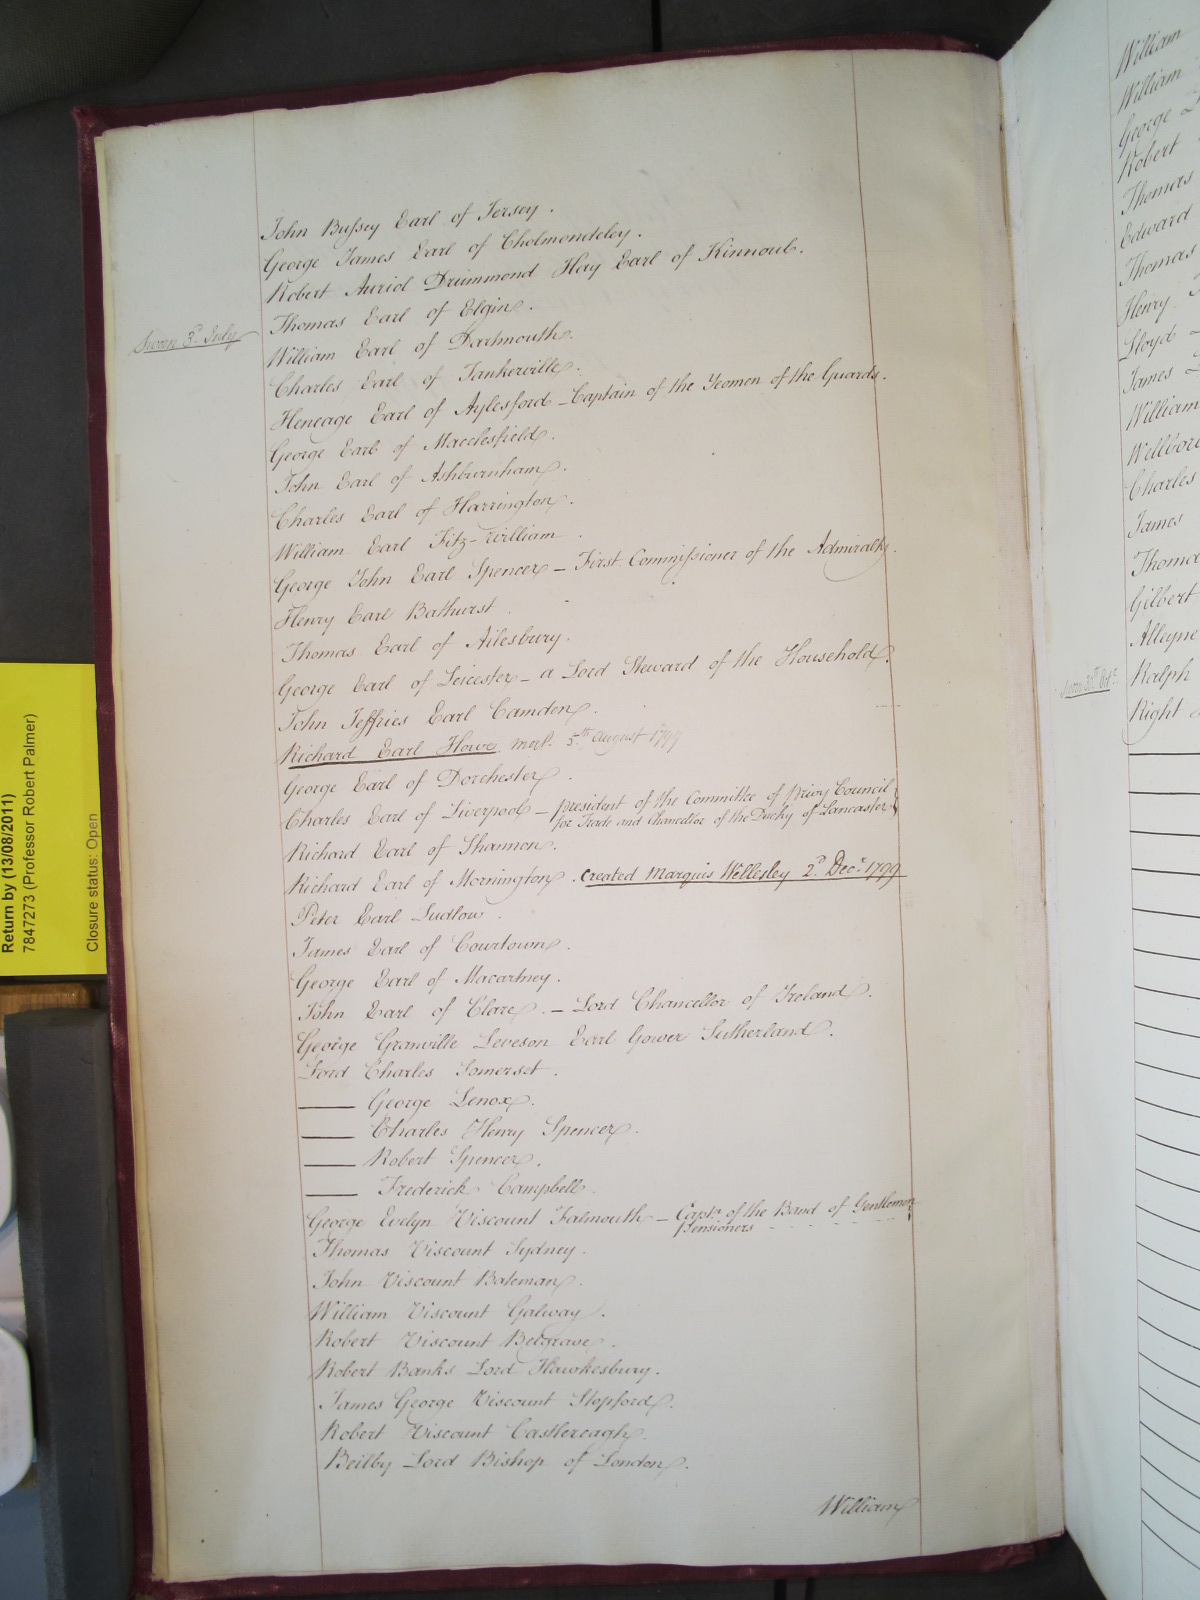 John Bussey Earl of Jersey.
George James Earl of Cholmondeley.
Robert Auriol Drummond Hay Earl of Kinnoul.
Thomas Earl of Elgin.
Sworn 3d. July
William Earl of Dartmouth.
Charles Earl of Tankerville.
Heneage Earl of Aylesford - Captain of the Yeomen of the Guards.
George Earl of Macclesfield.
John Earl of Ashburnham.
Charles Earl of Harrington.
William Earl Fitz-william.
George John Earl Spencer - First Commissioner of the Admiralty.
Henry Earl Bathurst.
Thomas Earl of Ailesbury.
George Earl of Leicester - a Lord Steward of the Household.
John Jeffries Earl Camden.
Richard Earl Howe. mort. 5th. August 1799
George Earl of Dorchester.
Charles Earl of Liverpool - president of the Committee of Privy Council
for Trade and Chancellor of the Duchy of Lancaster
Richard Earl of Shannon.
Richard Earl of Mornington. Created Marquis Wellesley 2d. Decr. 1799
Peter Earl Ludlow.
James Earl of Courtown.
George Earl of Macartney.
John Earl of Clare. - Lord Chancellor of Ireland.
George Granville Leveson Earl Gower Sutherland.
Lord Charles Somerset.
—— George Lenox.
—— Charles Henry Spencer.
—— Robert Spencer.
—— Frederick Campbell.
George Evelyn Viscount Falmouth - Captn. of the Band of Gentlemen
Pensioners
Thomas Viscount Sydney.
John Viscount Bateman.
William Viscount Galway.
Robert Viscount Belgrave.
Robert Banks Lord Hawkesbury.
James George Viscount Stopford.
Robert Viscount Castlereagh.
Beilby Lord Bishop of London.
William
Return by (13/08/2011)
7847273 (Professor Robert Palmer)
Closure status: Open
William
William
George
Robert
Thomas
Edward
Thomas
Henry
Lloyd
James
William
Charles
James
Gilbert
Alleyne
Ralph
Right